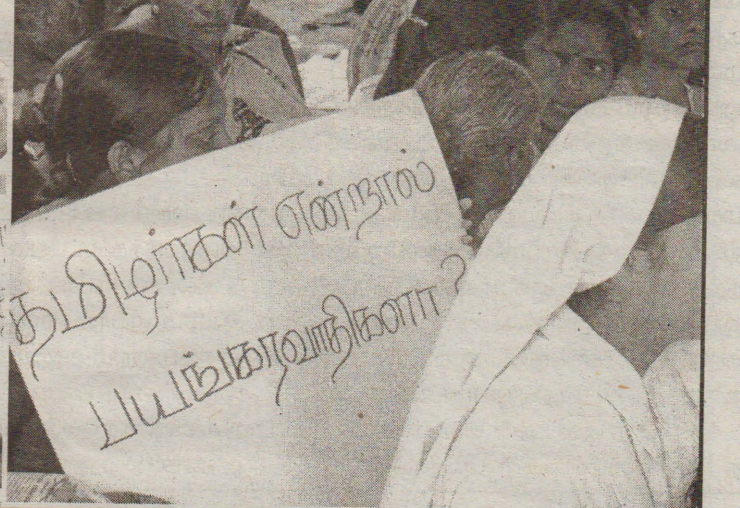 தமிழர்கள் என்றால்
பயங்கரவாதிகளா?